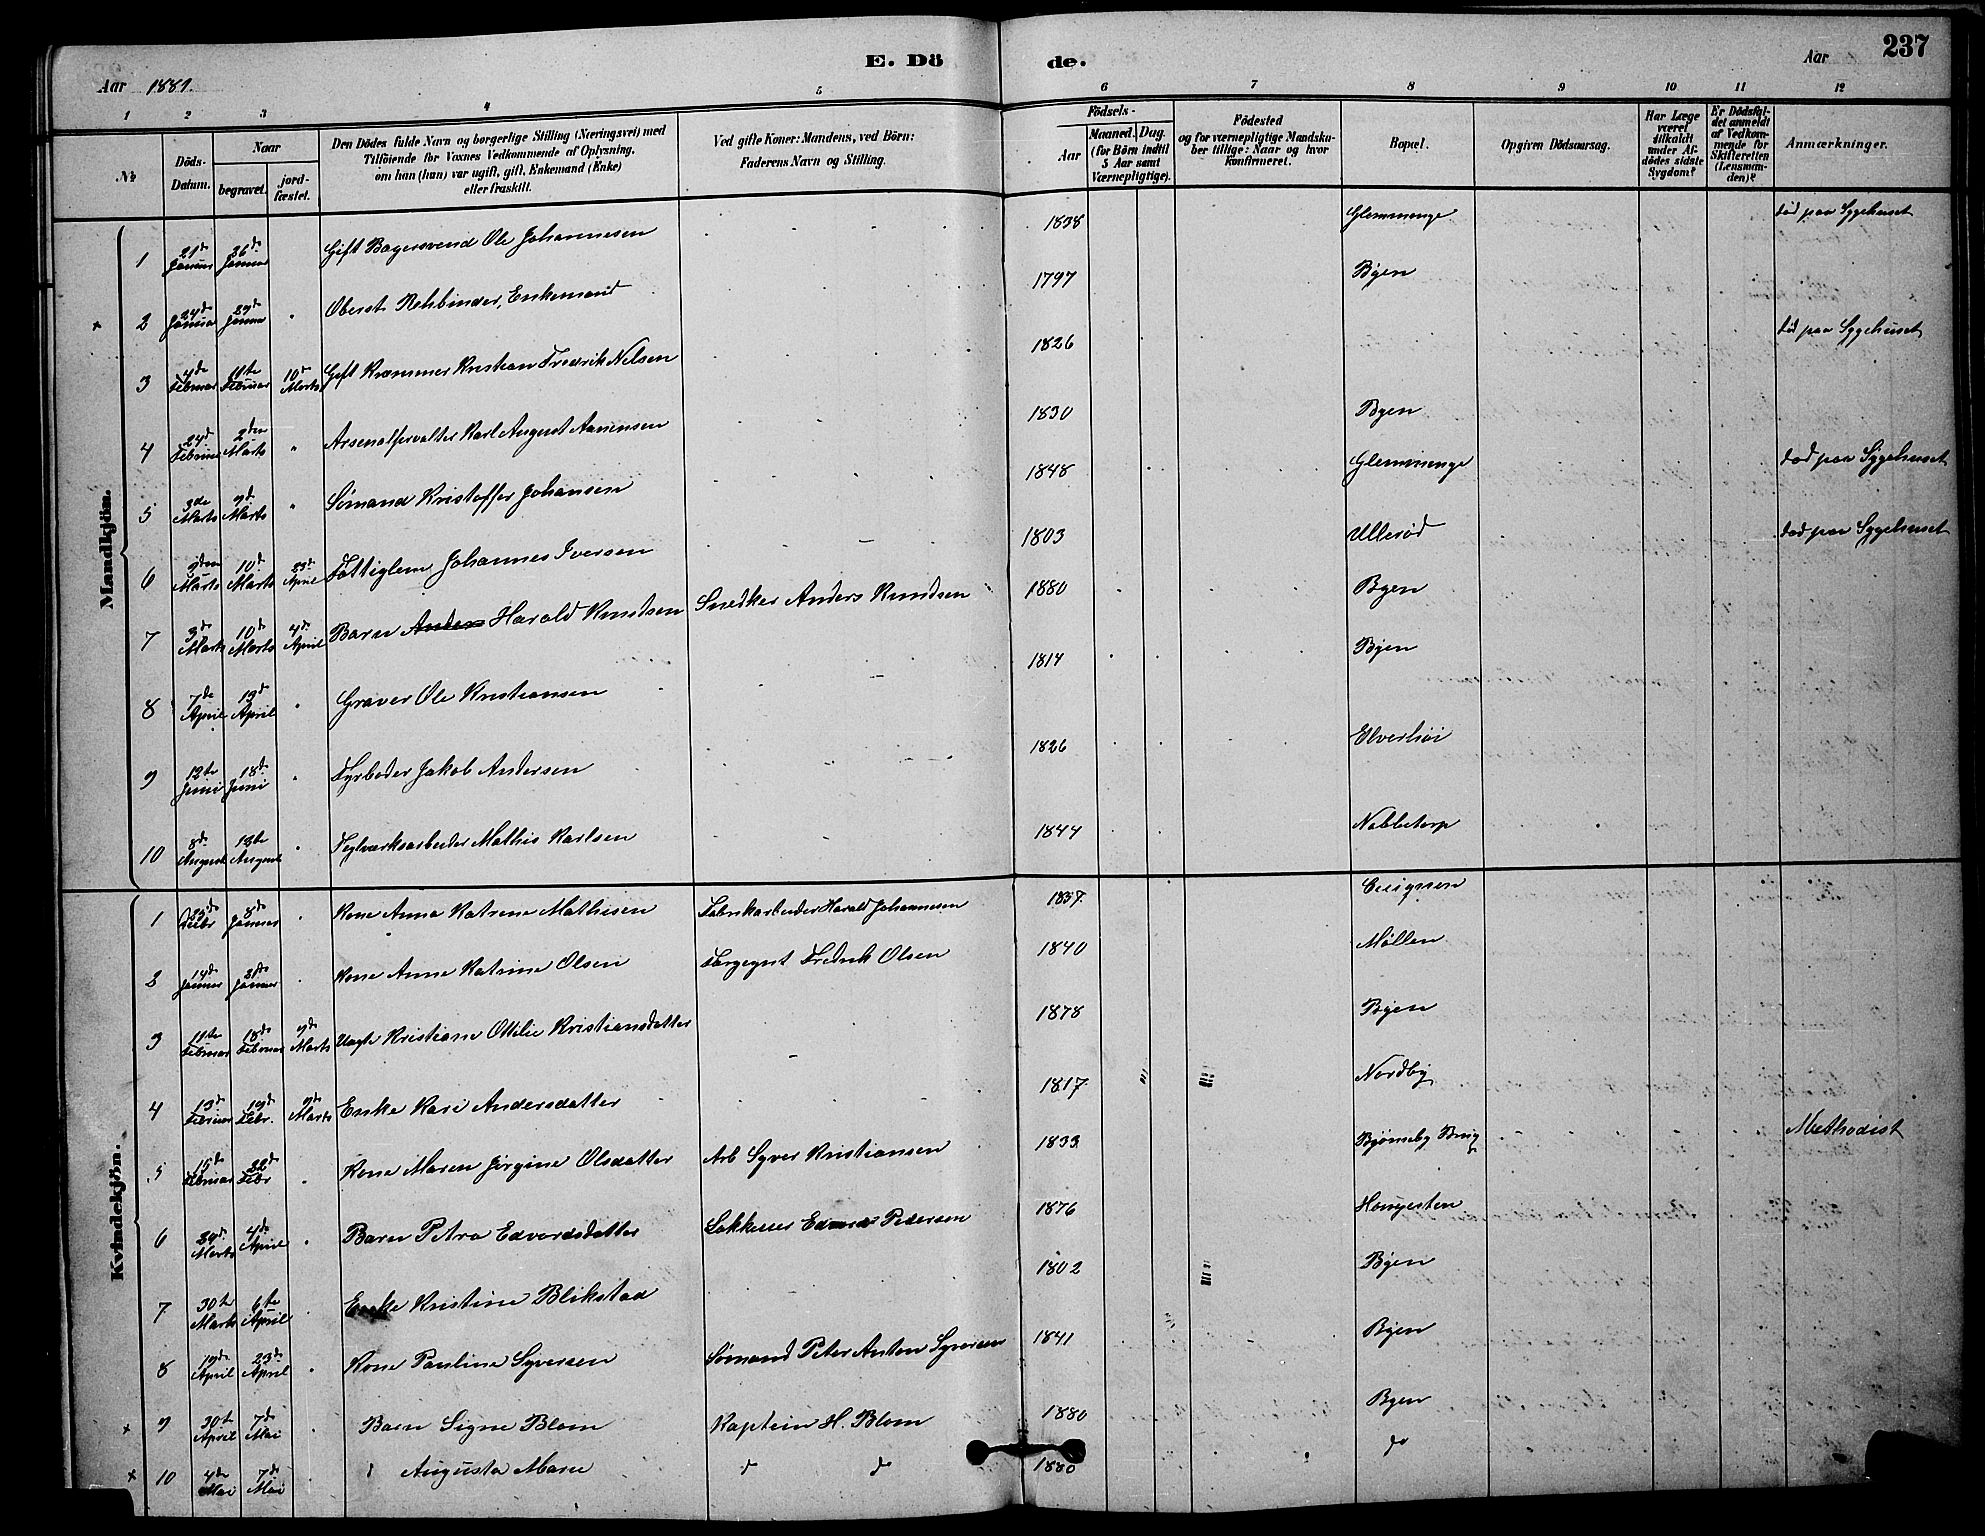 E. Dö de.
237
Aar 1881.
Aar
1 2 3 4 5 6 7 8 9 10 11 12
No
Döds-Datum.
Naar
begravet.
jord-fæstet.
Den Dödes fulde Navn og borgerlige Stilling (Næringsvei) med
Tilföiende for Voxnes Vedkommende af Oplysning,
om han (hun) var ugift, gift, Enkemand (Enke)
eller fraskilt.
Ved gifte Koner: Mandens, ved Börn:
Faderens Navn og Stilling.
Födsels-
Aar
Maaned. Dag.
(for Börn indtil
5 Aar samt
Værnepligtige).
Födested
og for værnepligtige Mandskaber tillige: Naar og hvor
Konfirmeret.
Bopæl.
Opgiven Dödsaarsag.
Har Læge
været
tilkaldt
under Afdödes sidste
Sygdom?
Er Dödsfaldet anmeldt
af Vedkommende for
Skifteretten
(Lensmanden)?
Anmærkninger.
Mandkjön.
1 21de Januar 26de Januar Gift Bagersvend Ole Johannesen 1838 Glemminge död paa Sygehuset
2 24de Januar 29de Januar " Oberst Rehbinder, Enkemand 1797 Byen
3 4de Februar 11te Februar 10de Marts Gift Kræmmer Kristian Fredrik Nilsen 1826 död paa Sygehuset
4 24de Februar 2den Marts " Arsenalforvalter Karl August Aamensen 1830 Byen
5 3de Marts 9de Marts " Sömand Kristoffer Johansen 1848 Glemminge död paa Sygehuset
6 2den Marts 10de Marts 23de April Fattiglem Johannes Iversen 1803 Ulleröd död paa Sygehuset
7 3de Marts 10de Marts 4de April Barn Anders Harald Knudsen Snedker Anders Knudsen 1880 Byen
8 7de April 13de April " Graver Ole Kristiansen 1814 Byen
9 12te Juni 18de Juni " Fyrböder Jakob Andersen 1826 Elverhöi
10 8de August 13te August " Teglværksarbeider Mathis Karlsen 1844 Nabbetorp
Kvindekjön.
1 Decbr 8de Januar " Kone Anna Katrine Mathisen Fabrikarbeider Harald Johannesen 1837
2 14de Januar 31de Januar " Kone Anne Katrine Olsen Fredrik Olsen 1840 Möllen
3 11te Februar 18de Februar 9de Marts Ugift Kristiane Ottilie Kristiansdatter 1878 Byen
4 13de Februar 19de Febr. 9de Marts Enke Kari Andersdatter 1817 Nordby
5 15de Februar 22de Febr " Kone Maren Jörgine Olsdatter Arb Syver Kristiansen 1833 Björneby Brug Methodist
6 29de Marts 4de April " Barn Petra Edvardsdatter Edvard Pedersen 1876 Haugesten
7 30te Marts 6te April " Enke Kristine Blikstad 1802 Byen
8 19de April 23de April " Kone Pauline Syversen Sömand Peter Anton Syversen 1841 Byen
9 30te April 7de Mai " Barn Signe Blom Kaptein H. Blom 1880 Byen
10 4de Mai 7de Mai " Augusta Marie d d 1880 do